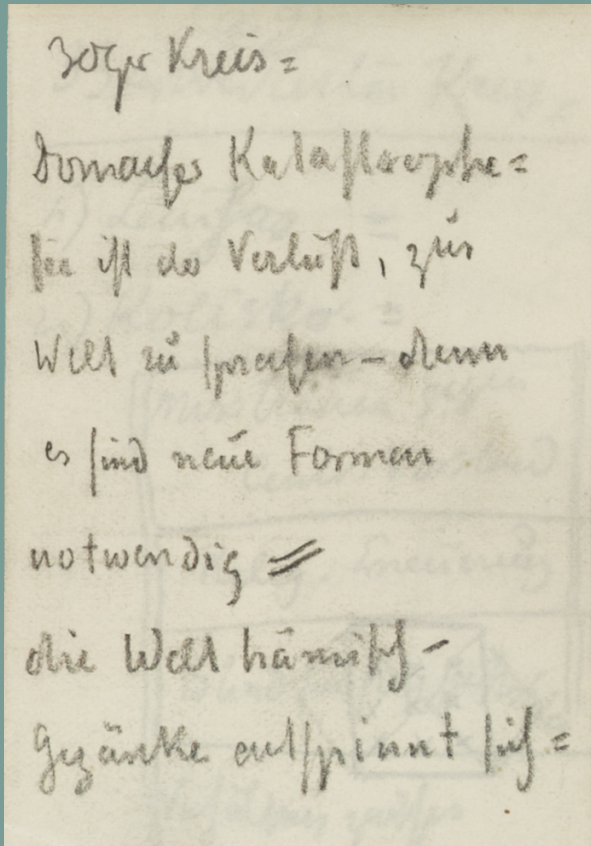 30ger Kreis =
Dornacher Katastrophe =
sie ist der Verlust, zur
Welt zu sprechen – denn
es sind neue Formen
notwendig =
die Welt hämisch –
Gezänke entspinnt sich =